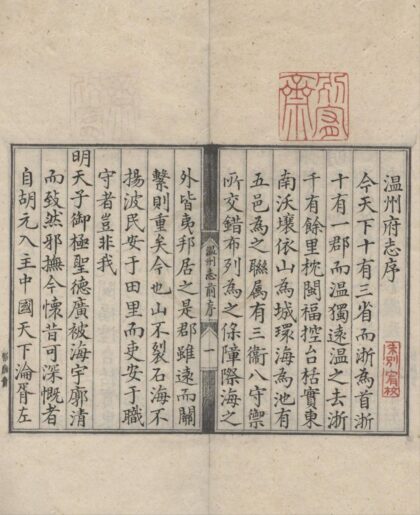 別宥齋
温州府志序
朱別宥收
今天下十有三省而浙為首浙
十有一郡而温獨遠温之去浙
千有餘里枕閩福控台栝實東
南沃壤依山為城環海為池有
五邑為之聯属有三衛八守禦
所交錯布列為之保障際海之
温州志前序
一
外皆夷邦居之是郡雖遠而關
繫則重矣今也山不裂石海不
揚波民安于田里而吏安于職
守者豈非我
明天子御極聖德廣被海宇廓清
而致然邪撫今懷昔可深慨者
自胡元入主中國天下淪胥左